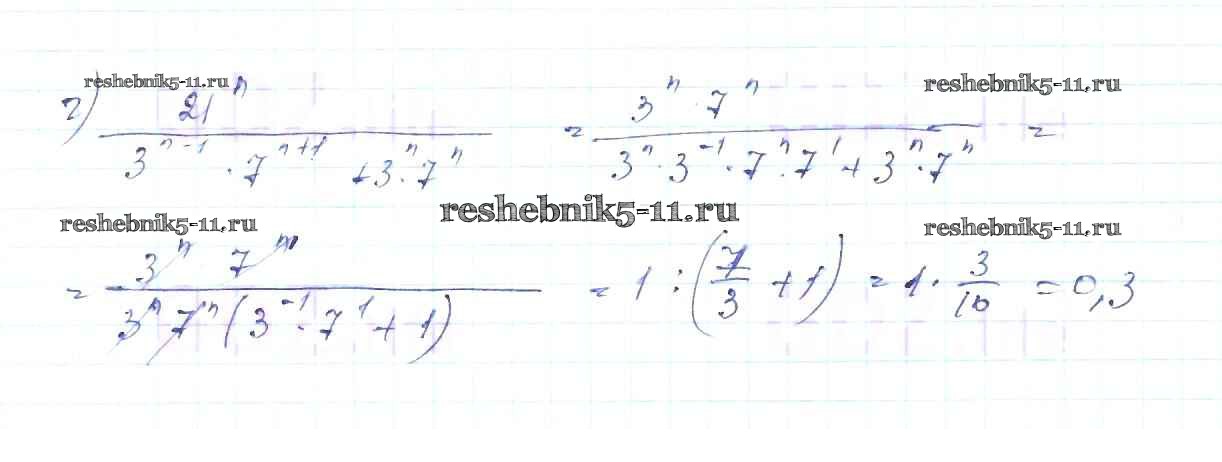 reshebnik5-11.ru reshebnik5-11.ru
г) 21^n / (3^(n-1) · 7^(n+1) + 3^n · 7^n) = 3^n · 7^n / (3^n · 3^(-1) · 7^n · 7^1 + 3^n · 7^n) =
reshebnik5-11.ru reshebnik5-11.ru reshebnik5-11.ru
= 3^n 7^n / (3^n 7^n (3^(-1) · 7^1 + 1)) = 1 : (7/3 + 1) = 1 · 3/10 = 0,3